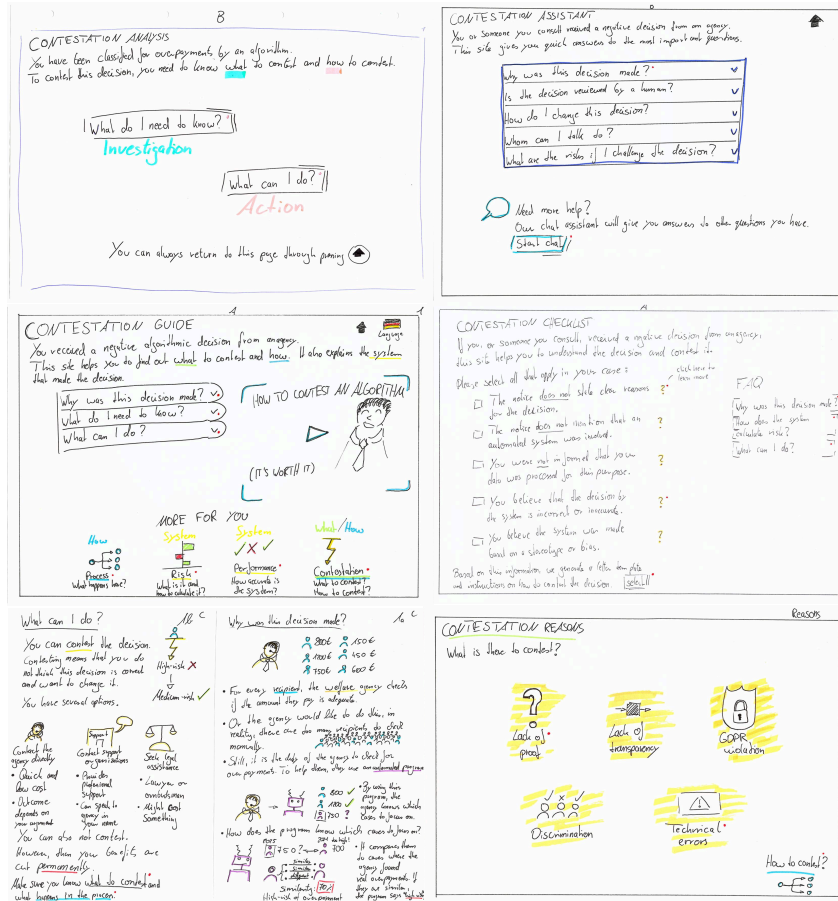 B
CONTESTATION ANALYSIS
You have been classified for overpayments by an algorithm.
To contest this decision, you need to know what to contest and how to contest.
What do I need to know?
Investigation
What can I do?
Action
You can always return to this page through pressing
CONTESTATION ASSISTANT
You or someone you consult received a negative decision from an agency.
This site gives you quick answers to the most important questions.
Why was this decision made?
Is the decision reviewed by a human?
How do I change this decision?
Whom can I talk to?
What are the risks if I challenge the decision?
Need more help?
Our chat assistant will give you answers to other questions you have.
Start chat
A
CONTESTATION GUIDE
Language
You received a negative algorithmic decision from an agency.
This site helps you to find out what to contest and how. It also explains the system
that made the decision.
Why was this decision made?
What do I need to know?
What can I do?
HOW TO CONTEST AN ALGORITHM
(IT'S WORTH IT)
MORE FOR YOU
How
Process
What happens here?
System
Risk
What is it and
how to calculate it?
System
Performance
How accurate is
the system?
What/How
Contestation
What to contest?
How to contest?
A
CONTESTATION CHECKLIST
If you, or someone you consult, received a negative decision from an agency,
this site helps you to understand the decision and contest it.
Please select all that apply in your case:
click here to
learn more
The notice does not state clear reasons
for the decision.
The notice does not mention that an
automated system was involved.
You were not informed that your
data was processed for this purpose.
You believe that the decision by
the system is incorrect or inaccurate.
You believe the system was made
based on a stereotype or bias.
Based on this information we generate a letter template
and instructions on how to contest the decision.
FAQ
Why was this decision made?
How does the system
calculate risk?
What can I do?
What can I do?
C
You can contest the decision.
Contesting means that you do
not think this decision is correct
and want to change it.
You have several options.
High-risk
Medium-risk
Contact the
agency directly
• Quick and
low cost
• Outcome
depends on
your argument
Support
Contact support
organizations
• Provides
professional
support
• Can speak to
agency in
your name
Seek legal
assistance
• Lawyer or
ombudsman
• Might cost
something
You can also not contest.
However, then your benefits are
cut permanently.
Make sure you know what to contest and
what happens in the process.
Why was this decision made?
C
800€ 150€
1100€ 450€
750€ 600€
• For every recipient, the welfare agency checks
if the amount they pay is adequate.
• Or the agency would like to do this, in
reality there are too many recipients to check
manually.
• Still, it is the duty of the agency to check for
overpayments. To help them, they use an automated program
800
1100
750 ?
• By using this
program, the
agency knows which
cases to focus on.
• How does the program know which cases to focus on?
750 ? 700
Similar
Similar
Similarity: 70%
High-risk of overpayment
• It compares them
to cases where the
agency found
real overpayments. If
they are similar,
the program says high-risk
Reasons
CONTESTATION REASONS
What is there to contest?
Lack of
proof
Lack of
transparency
GDPR
violation
Discrimination
Technical
errors
How to contest?